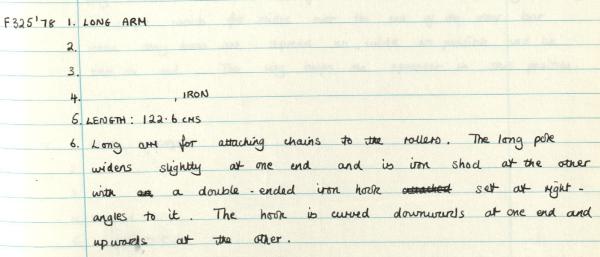 F325'78 1. LONG ARM
2.
3.
4. , IRON
5. LENGTH: 122.6 CMS
6. Long arm for attaching chains to the rollers. The long pole
widens slightly at one end and is iron shod at the other
with a double-ended iron hook attached set at right-
angles to it. The hook is curved downwards at one end and
upwards at the other.